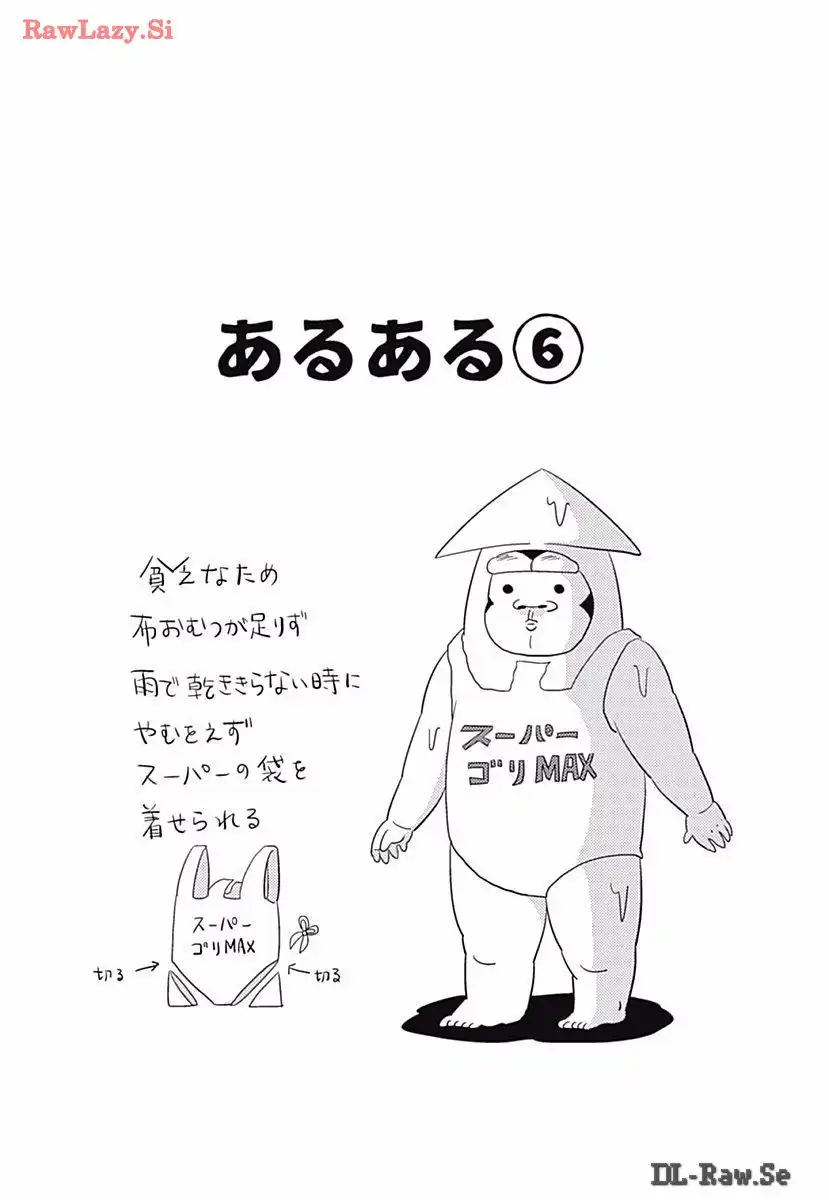 RawLazy.Si
あるある⑥
貧乏なため
布おむつが足りず
雨で乾ききらない時に
やむをえず
スーパーの袋を
着せられる
スーパー
ゴリMAX
スーパー
ゴリMAX
切る
切る
DL-Raw.Se